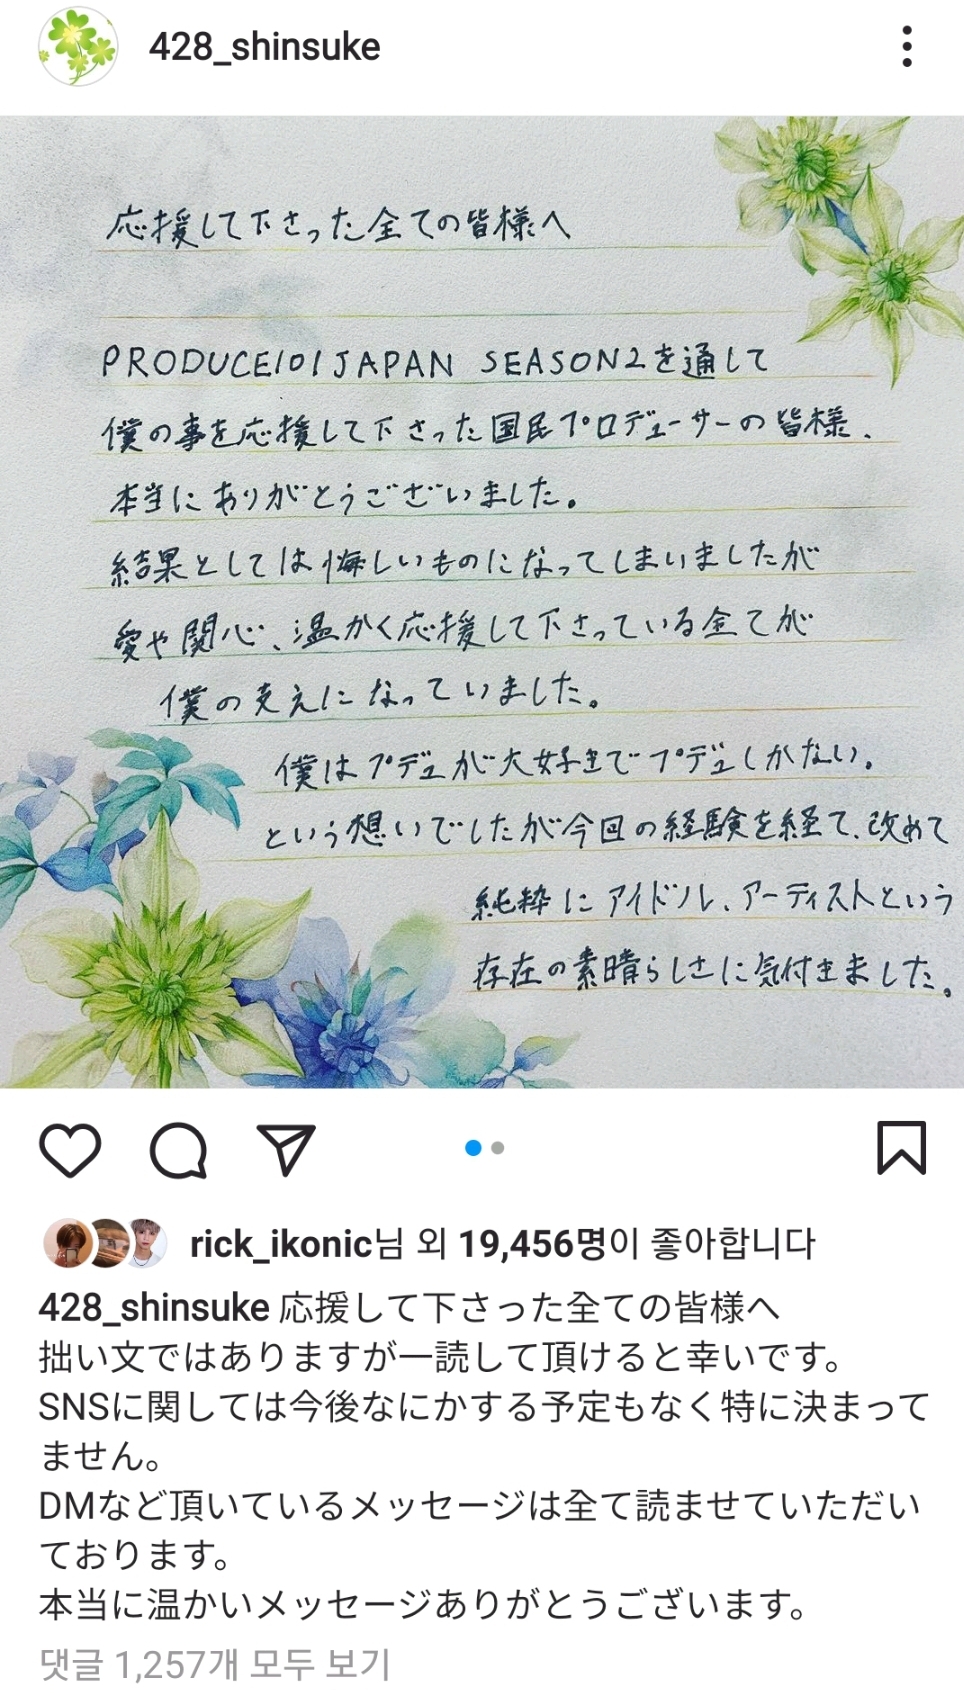 428_shinsuke
応援して下さった全ての皆様へ
PRODUCE101JAPAN SEASON2を通して
僕の事を応援して下さった国民プロデューサーの皆様、
本当にありがとうございました。
結果としては悔しいものになってしまいましたが
愛や関心、温かく応援して下さっている全てが
僕の支えになっていました。
僕はプデュが大好きでプデュしかない。
という想いでしたが今回の経験を経て、改めて
純粋にアイドル、アーティストという
存在の素晴らしさに気付きました。
rick_ikonic님 외 19,456명이 좋아합니다
428_shinsuke 応援して下さった全ての皆様へ
拙い文ではありますが一読して頂けると幸いです。
SNSに関しては今後なにかする予定もなく特に決まって
ません。
DMなど頂いているメッセージは全て読ませていただい
ております。
本当に温かいメッセージありがとうございます。
댓글 1,257개 모두 보기